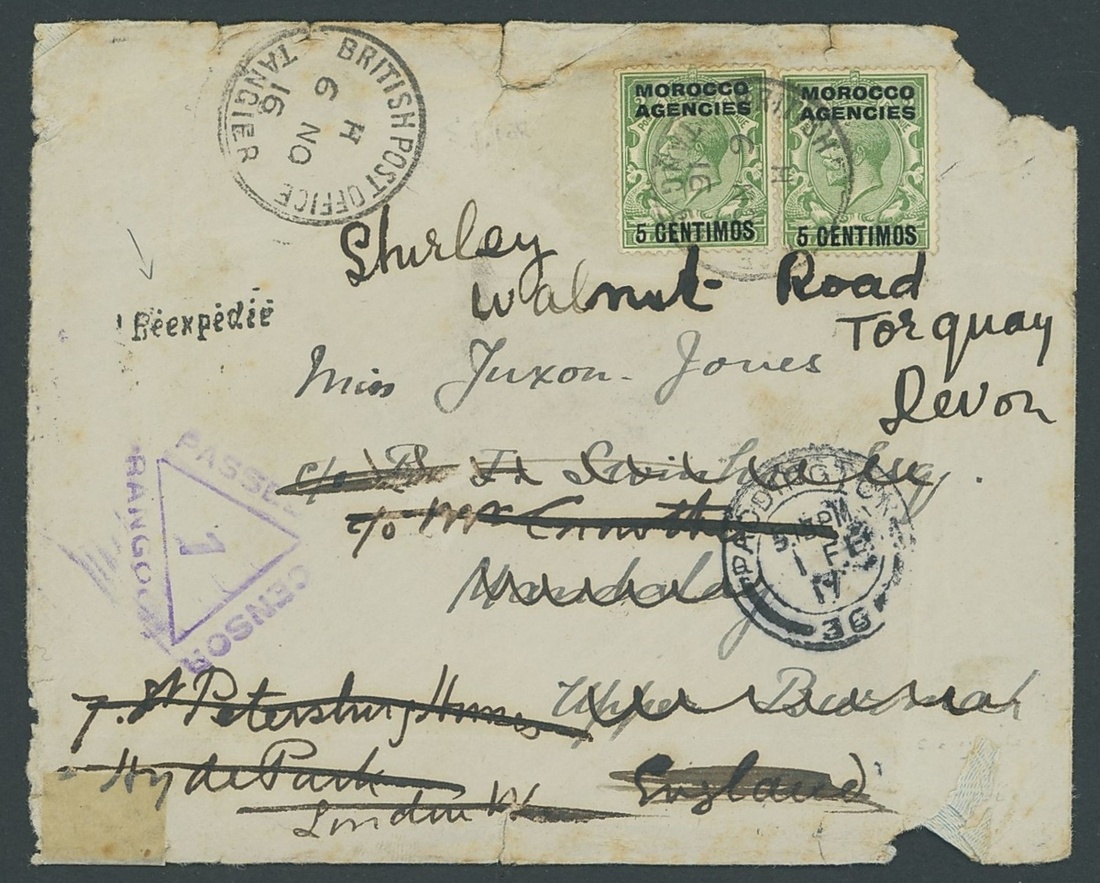 BRITISH POST OFFICE
TANGIER
H
6 NO
16
MOROCCO AGENCIES
5 CENTIMOS
MOROCCO AGENCIES
5 CENTIMOS
Shirley
Walnut Road
Torquay
Devon
Réexpédié
Miss Juxon-Jones
c/o
Esq
c/o Mr
Mandalay
PADDINGTON
5.15PM
1 FE
17
36
PASSED
CENSOR
RANGOO
1
7. St Petersburg Home
Upper Burmah
Hyde Park
England
London W